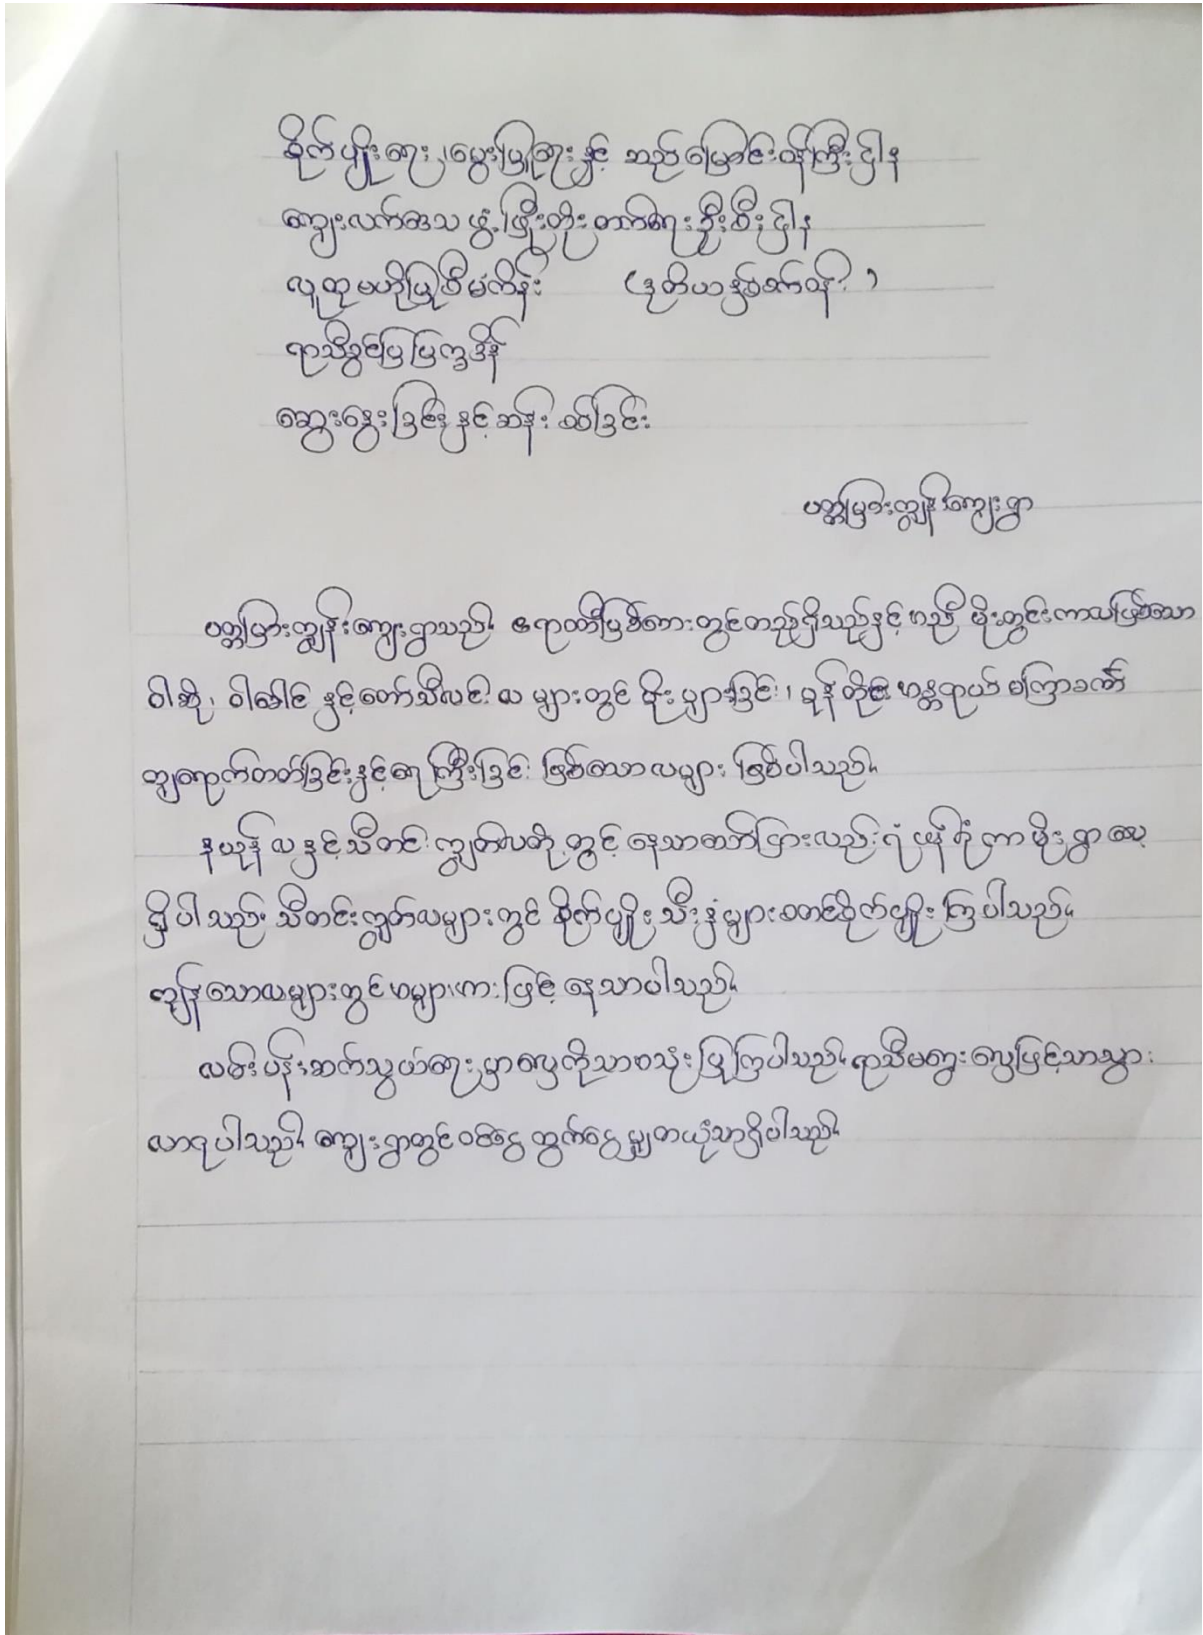 စိုက်ပျိုးရေး၊ မွေးမြူရေးနှင့် ဆည်မြောင်းဝန်ကြီးဌာန
ကျေးလက်ဒေသ ဖွံ့ဖြိုးတိုးတက်ရေးဦးစီးဌာန
လူထုဗဟိုပြုစီမံကိန်း (ဒုတိယနှစ်စက်ဝန်း)
ရာသီခွင်ပြ ပြက္ခဒိန်
ဆွေးနွေးခြင်းနှင့်ဆန်းစစ်ခြင်း
ပတ္တမြားကျွန်းကျေးရွာ
ပတ္တမြားကျွန်းကျေးရွာသည်၊ ဧရာဝတီမြစ်ဘေးတွင်တည်ရှိသည်နှင့်အညီ မိုးတွင်းကာလဖြစ်သော
ဝါဆို၊ ဝါခေါင် နှင့်တော်သလင်း လ များတွင် မိုးများခြင်း၊ မုန်တိုင်း အန္တရာယ် မကြာခဏ
ကျရောက်တတ်ခြင်းနှင့်ရေကြီးခြင်း ဖြစ်သောလများ ဖြစ်ပါသည်။
နယုန် လ နှင့်သီတင်းကျွတ်လတို့တွင် နေသာသော်ငြားလည်းရံဖန်ရံခါမိုးရွာလေ့
ရှိပါသည်။ သီတင်းကျွတ်လများတွင် စိုက်ပျိုးသီးနှံများစတင်စိုက်ပျိုးကြပါသည်။
ကျန်သောလများတွင်အများအားဖြင့် နေသာပါသည်။
လမ်းပန်းဆက်သွယ်ရေးမှာလှေကိုသာအသုံးပြုကြပါသည်။ ရာသီမရွေးလှေဖြင့်သာသွား
လာရပါသည်။ ကျေးရွာတွင်ဝင်ငွေထွက်ငွေမျှတယုံသာရှိပါသည်။